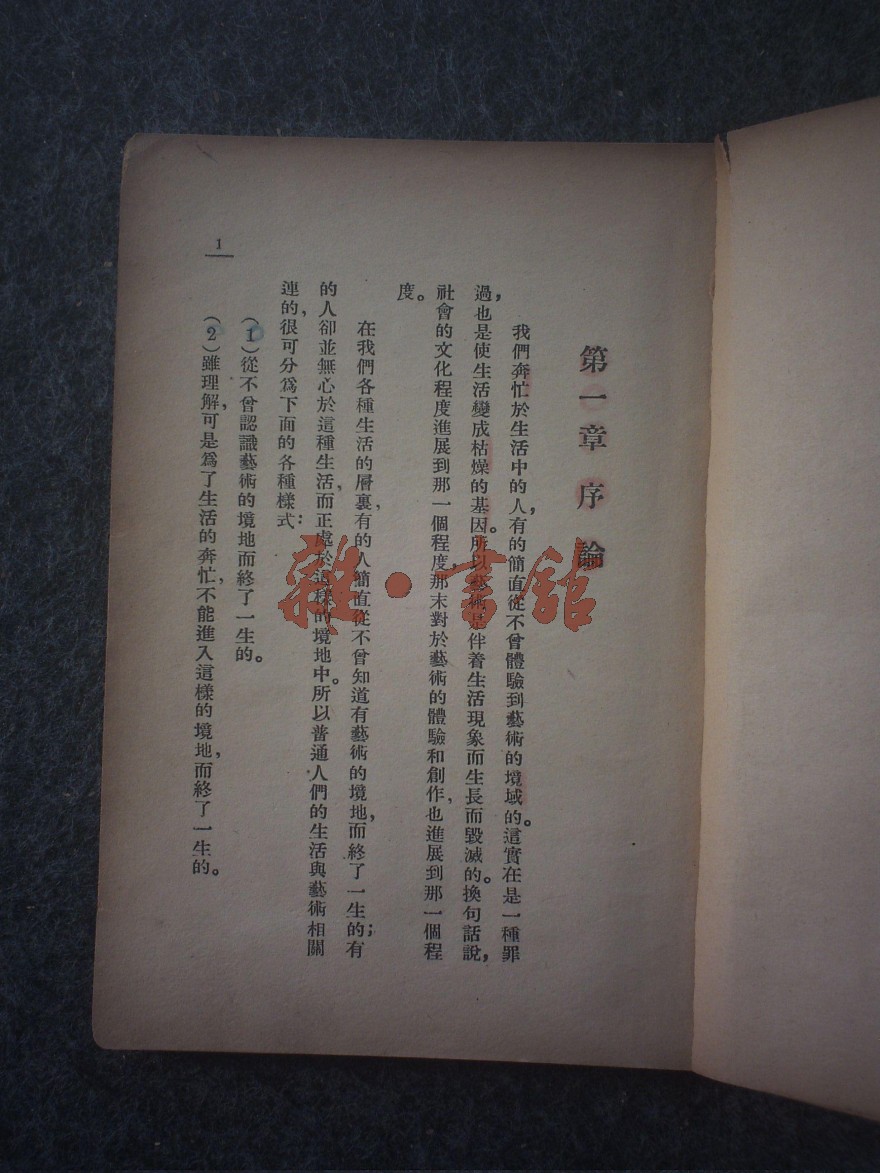 第一章 序論
我們奔忙於生活中的人，有的簡直從不曾體驗到藝術的境域的。這實在是一種罪
過，也是使生活變成枯燥的基因。所以藝術是伴着生活現象而生長而毀滅的。換句話說，
社會的文化程度進展到那一個程度，那末對於藝術的體驗和創作，也進展到那一個程
度。
在我們各種生活的層裏，有的人簡直從不曾知道有藝術的境地，而終了一生的；有
的人卻並無心於這種生活，而正處於這樣的境地中。所以普通人們的生活與藝術相關
連的，很可分爲下面的各種樣式：
(1)從不曾認識藝術的境地而終了一生的。
(2)雖理解，可是爲了生活的奔忙，不能進入這樣的境地，而終了一生的。
1
雜·書館